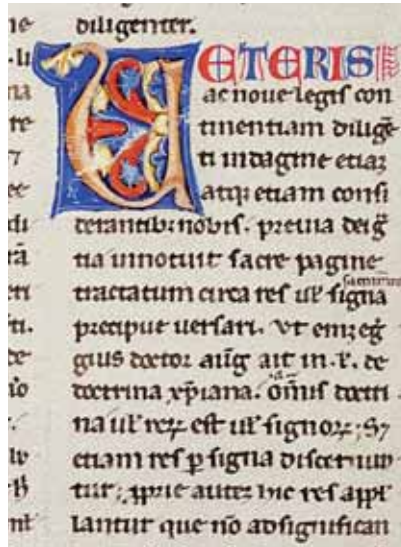 diligenter.
UETERIS
ac noue legis con
tinentiam diligē
ti indagine etiaꝫ
atqꝫ etiam consi
derantibꝫ nobis. preuia dei g̃
tia innotuit sacre pagine
tractatum circa res ul̓ signa
precipue uersari. Vt eni eg̓
gius doctor aug̃ ait in .l. de
doctrina xp̄iana. Om̄is doctri
na ul̓ reꝝ est ul̓ signoꝝ; Sꝫ
etiam res ꝑ signa discun
tur; ꝓprie autē hic res appl̓
lantur que nō ad significan